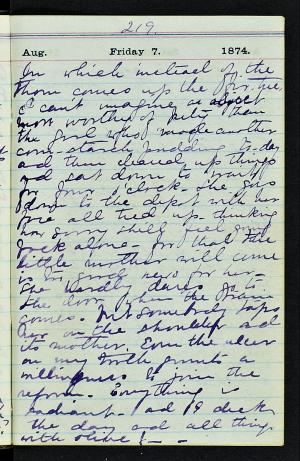 219.
Aug. Friday 7. 1874.
In which instead of the
thorn comes up the fir tree
I can't imagine an object
more worthy of pity than
the girl who made another
corn starch pudding to-day
and then cleared up things
and sat down to wait
for four o'clock. She goes
down to the depot with her
face all tied up thinking
how sorry she'll feel and
back alone - for that the
little mother will come
is too good news for her -
She hardly dares go to
the door when the train
comes. But somebody taps
her on the shoulder and
its mother. Even the ulcer
on my tooth grunts a
willingness to join the
reform. Everything is
radiant - and I'd deck
the day and all things
with olive! - -